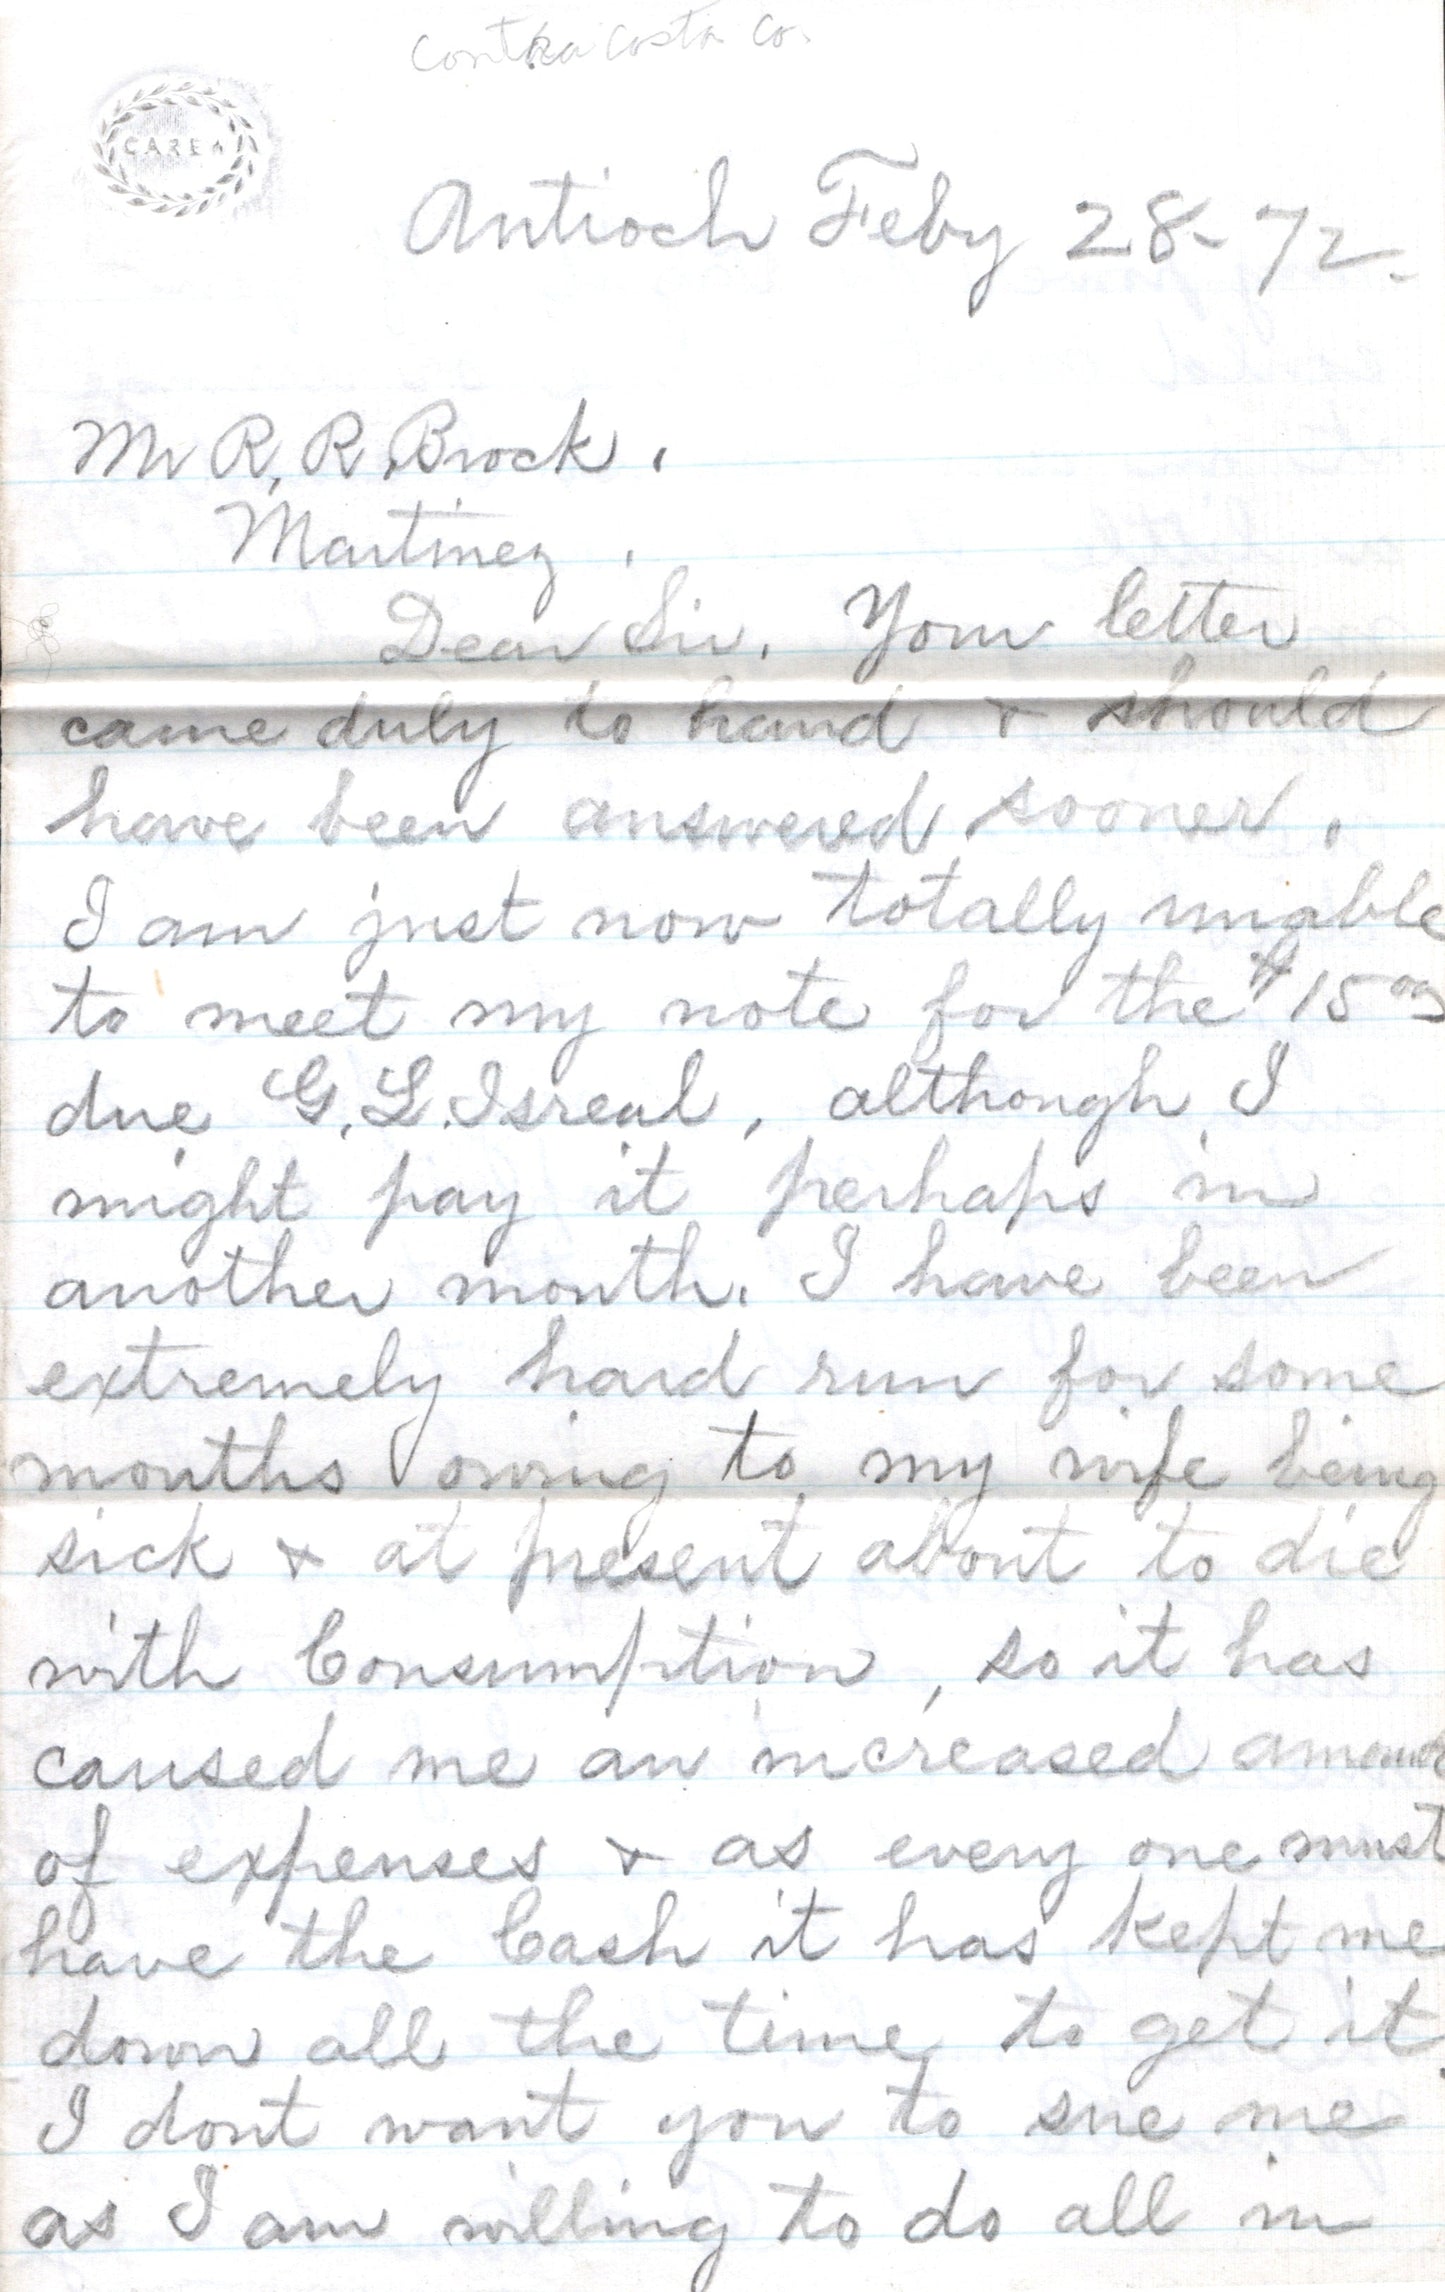 Contra Costa Co.
CAREW
Antioch Feby 28-72.
Mr R. R. Brock.
Martinez.
Dear Sir. Your letter
came duly to hand & should
have been answered sooner.
I am just now totally unable
to meet my note for the $15 00
due G. L. Isreal, although I
might pay it perhaps in
another month. I have been
extremely hard run for some
months owing to my wife being
sick & at present about to die
with Consumption, so it has
caused me an increased amount
of expenses & as every one must
have the Cash it has kept me
down all the time to get it.
I dont want you to sue me
as I am willing to do all in